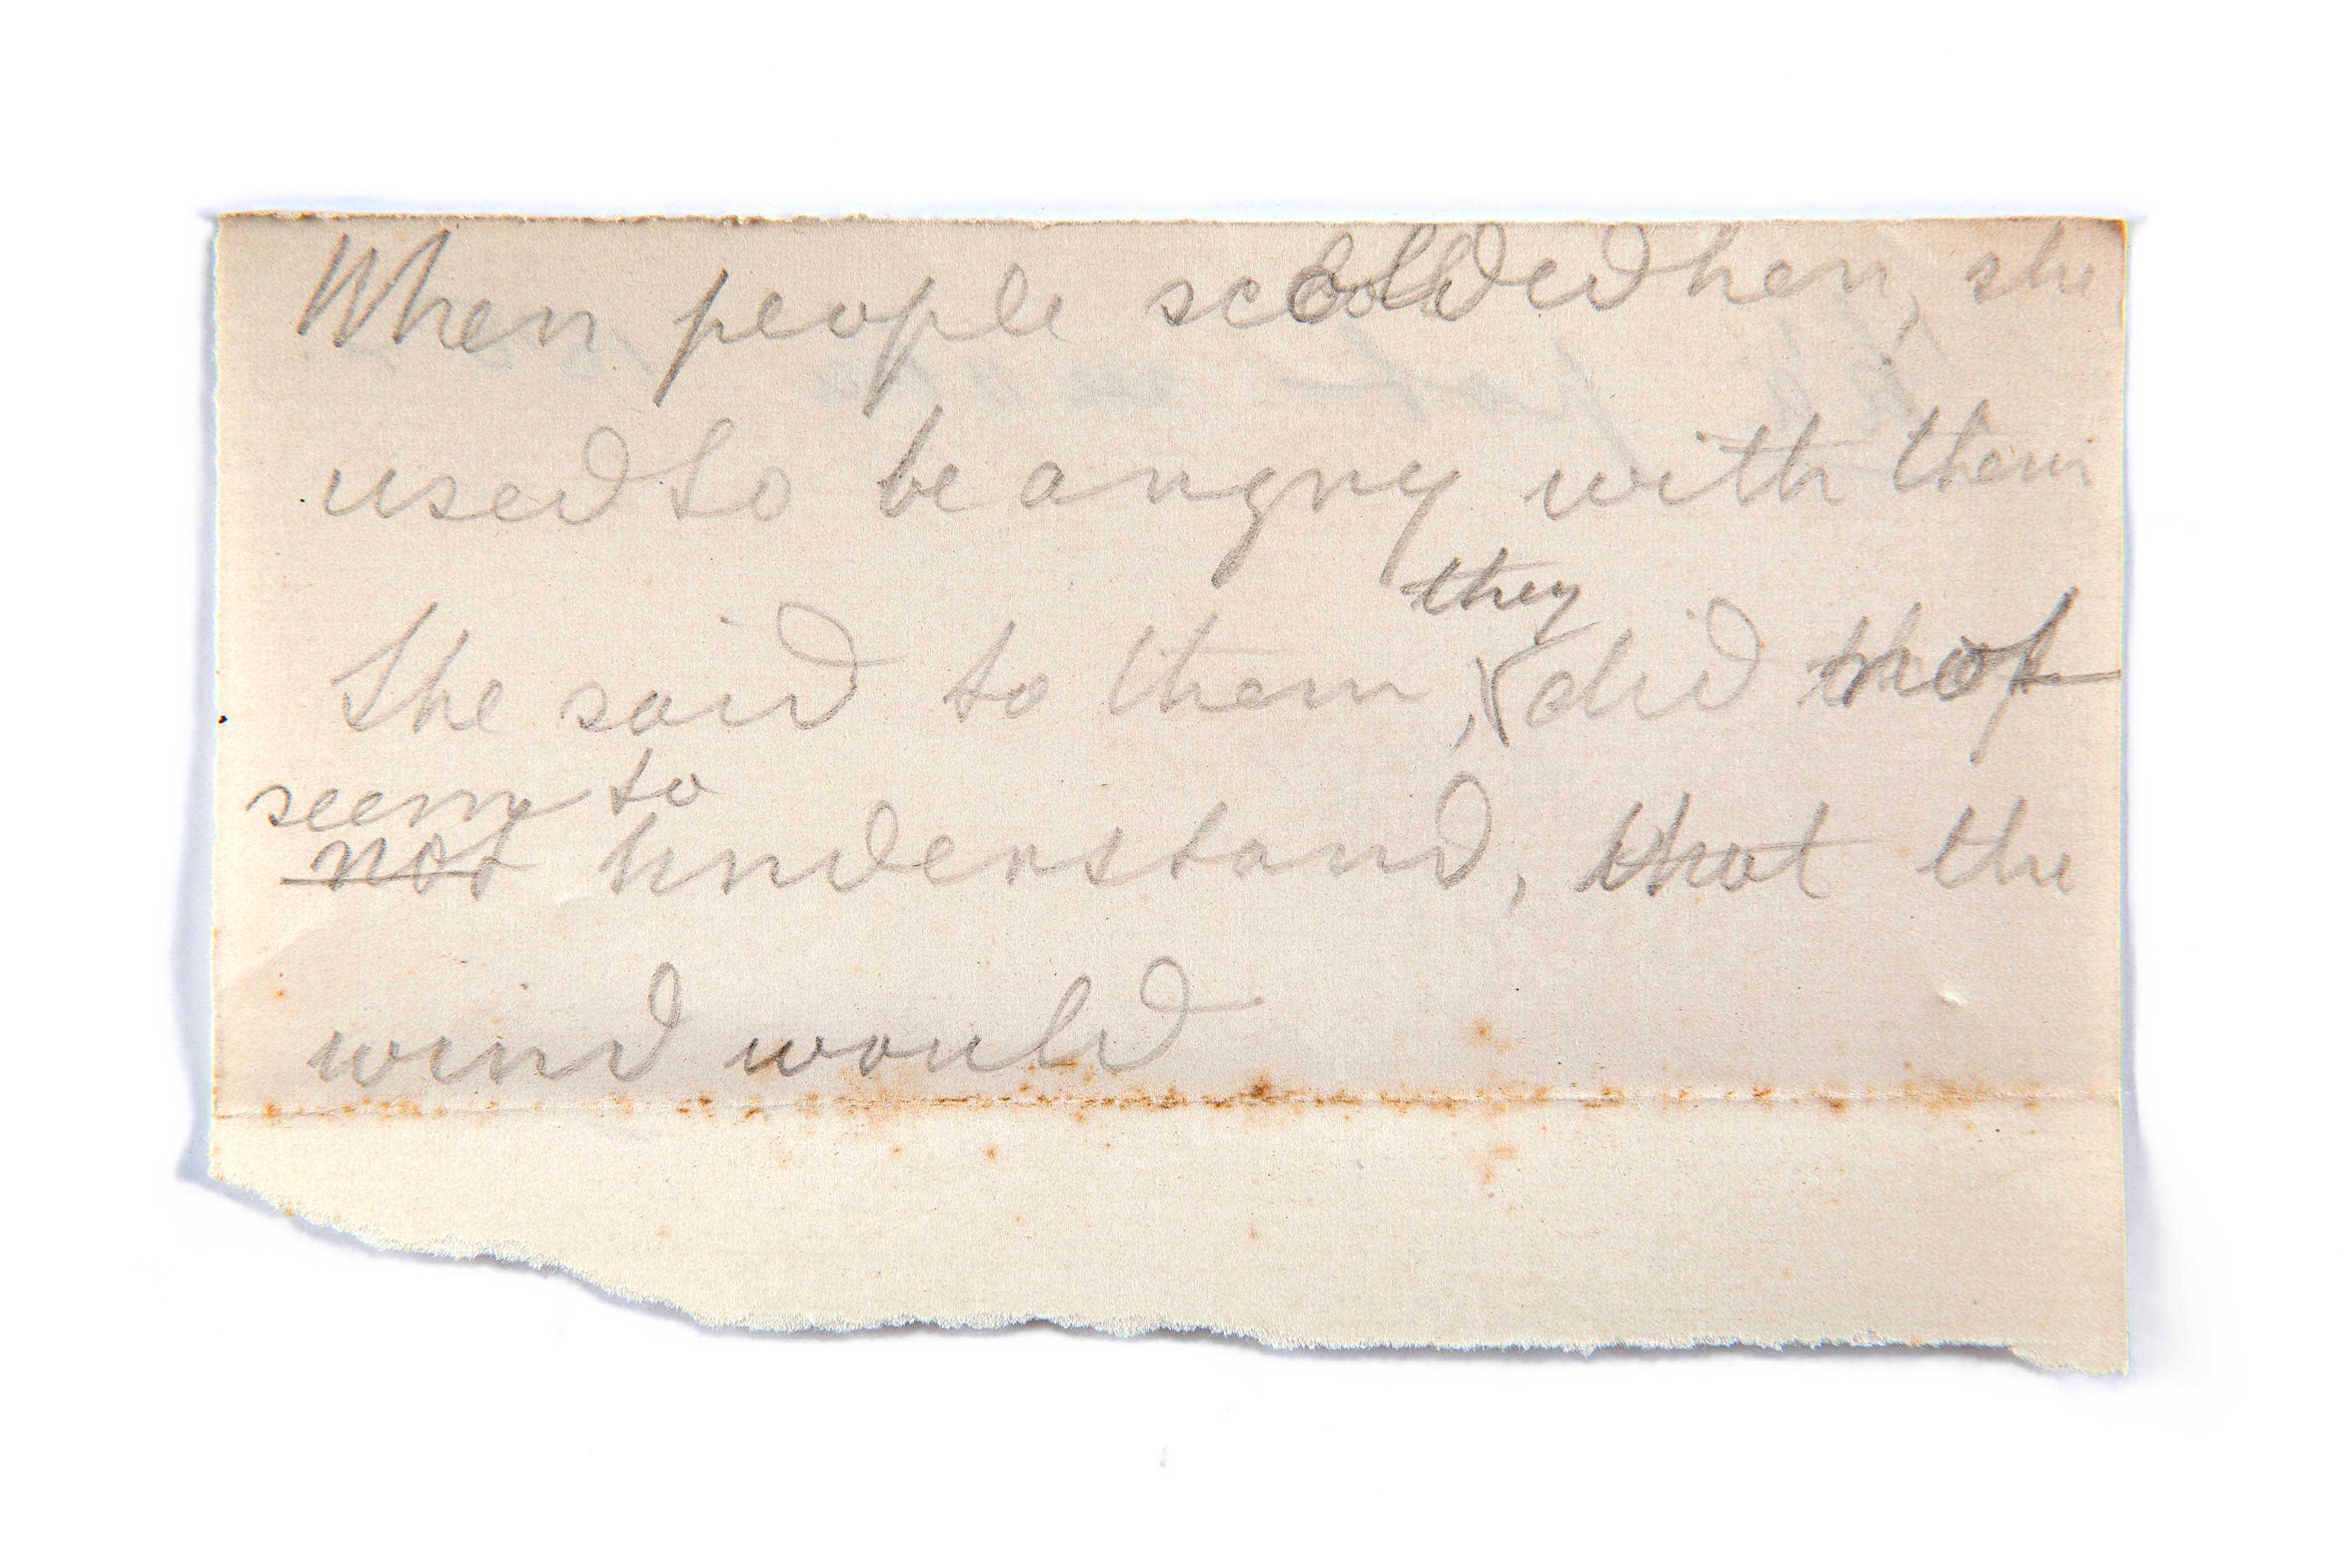 When people scolded her, she
used to be angry with them
they
She said to them, did not
seem to
not understand, that the
wind would